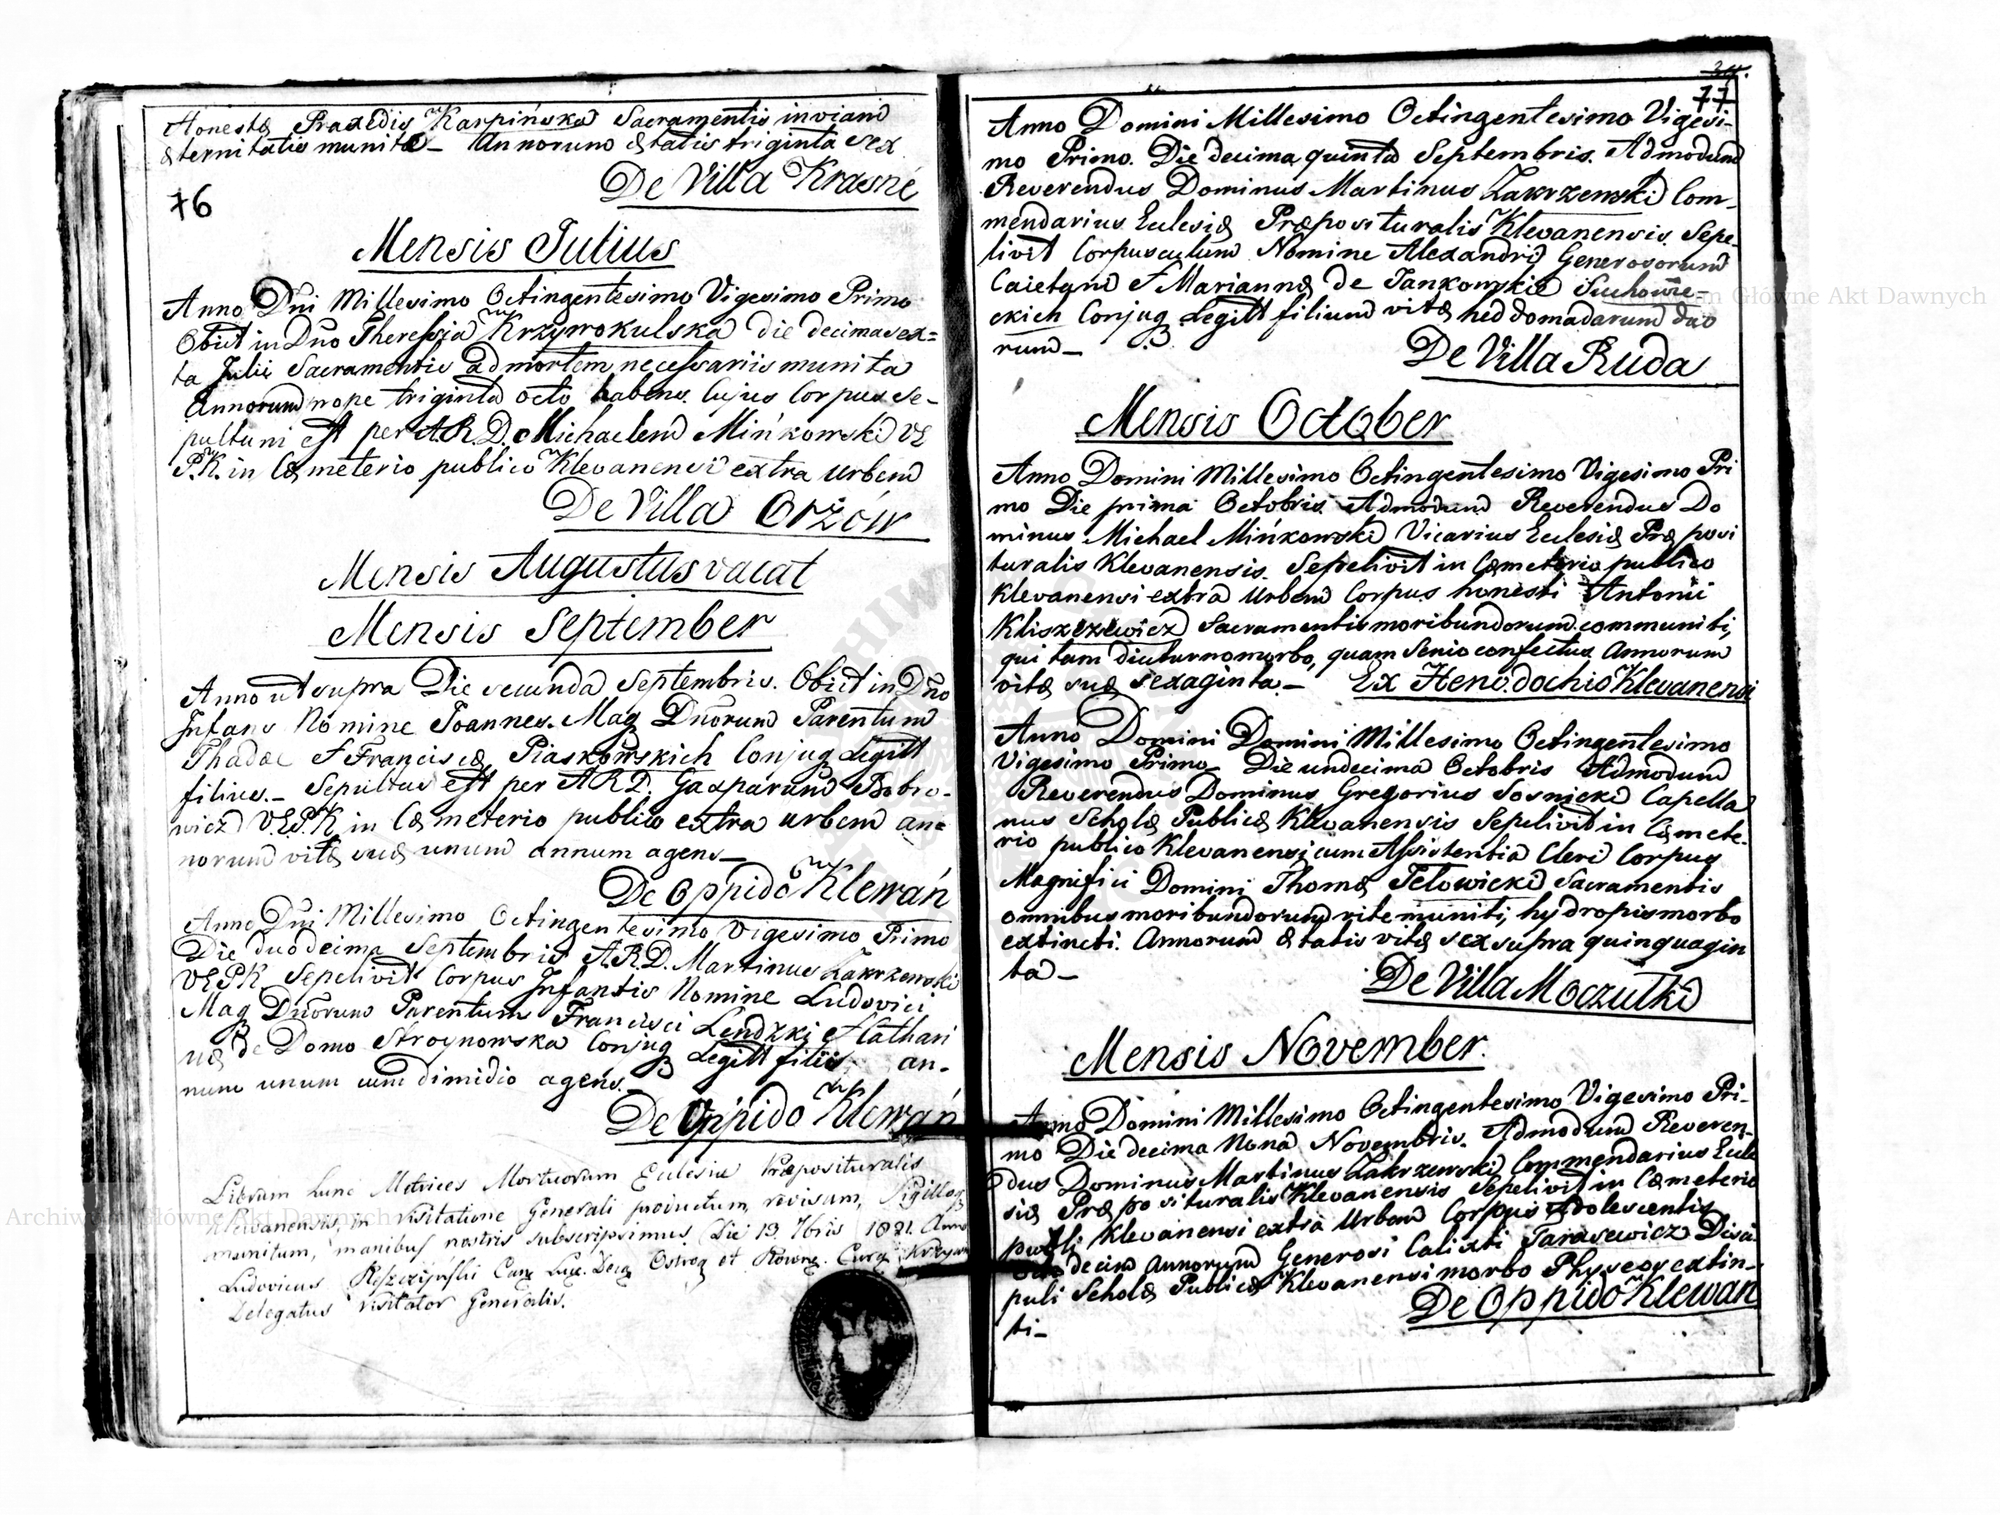 Honestæ Praxedis Karpińska Sacramentis in viam
æternitatis munitæ – Annorum ætatis triginta sex
De Villa Krasné
76
Mensis Julius
Anno Dni Millesimo Octingentesimo Vigesimo Primo
Obiit in Dno Theressia Krzywokulska die decima sex=
ta Julii Sacramentis ad mortem necessariis munita
Annorum nope triginta octo habens. Cujus Corpus Se-
pultum est per A.R.D. Michaelem Mińkowski VE
P.K. in Cæmeterio publico Klevanensi extra Urbem
De Villa Orżów
Mensis Augustus vacat
Mensis September
Anno ut supra Die secunda Septembris. Obiit in Dno
Infans Nomine Joannes. Mag Dnorum Parentum
Thadæi & Franciscæ Piaskowskich Conjug Legitt
filius. – Sepultus est per A R D. Gasparum Bobro-
wicz VEPK in Cæmeterio publico extra urbem an=
norum vitæ suæ unum annum agens –
De Oppido Klewań
Anno Dni Millesimo Octingentesimo Vigesimo Primo
Die duodecima Septembris A.R.D. Martinus Zakrzewski
VEPK Sepelivit Corpus Infantis Nomine Ludovici
Mag Dnorum Parentum Francisci Lendzki & Cathari
næ de Domo Stroynowska Conjug Legitt filii an-
num unum cum dimidio agens. –
De Oppido Klewań
Librum hunc Metrices Mortuorum Ecclesiæ Præposituralis
Klevanensis, in Visitatione Generali productum, revisum, Sigilloq
munitum, manibus nostris subscripsimus. Die 13 7bris 1821 Anno
Ludovicus Can Luc. Ostrog et Rowne.
Delegatus Visitator Generalis.
77
Anno Domini Millesimo Octingentesimo Vigesi-
mo Primo. Die decima quinta Septembris. Admodum
Reverendus Dominus Martinus Zakrzewski Com-
mendarius Eclesiæ Præposituralis Klevanensis Sepe-
livit Corpusculum Nomine Alexandri Generosorum
Caietani & Mariannæ de Jankowskie Suchowie-
ckich Conjug Legitt filium vitæ hebdomadarum duo
rum –
De Villa Ruda
Mensis October
Anno Domini Millesimo Octingentesimo Vigesimo Pri
mo Die prima Octobris Admodum Reverendus Do
minus Michael Mińkowski Vicarius Eclesiæ Præposi
turalis Klevanensis Sepelivit in Cæmeterio publico
Klevanensi extra Urbem Corpus honesti Antonii
Kliszczewicz Sacramentis moribundorum communiti,
qui tam diuturno morbo, quam Senio confectus Annorum
vitæ suæ sexaginta. – Ex Henodochio Klevanensi
Anno Domini Domini Millesimo Octingentesimo
Vigesimo Primo Die undecima Octobris Admodum
Reverendus Dominus Gregorius Sosnicki Capella
nus Scholæ Publicæ Klevanensis Sepelivit in Cæmete-
rio publico Klevanensi cum Assistentia Cleri Corpus
Magnifici Domini Thomæ Jełowicki Sacramentis
omnibus moribundorum rite muniti, hydropis morbo
extincti. Annorum ætatis vitæ sex supra quinquagin
ta –
De Villa Moczulki
Mensis November.
Anno Domini Millesimo Octingentesimo Vigesimo Pri-
mo Die decima Nona Novembris. Admodum Reveren-
dus Dominus Martinus Zakrzewski Commendarius Ecle
siæ Præposituralis Klevanensis Sepelivit in Cæmeterio
publi Klevanensi extra Urbem Corpus Adolescentis
decim Annorum Generosi Calixti Tarasewicz Disci-
puli Scholæ Publicæ Klevanensi morbo Physeos extin-
ti –
De Oppido Klewan
Archiwum Główne Akt Dawnych